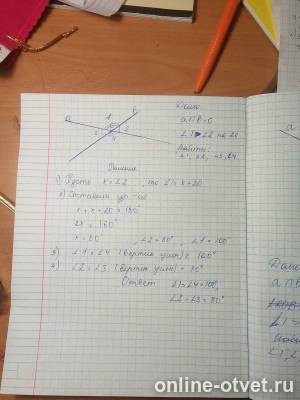 Дано
a∩b=0
∠1>∠2 на 20
Найти:
∠1, ∠2, ∠3, ∠4
Решение
1) Пусть x=∠2, то ∠1=x+20
2) Составим ур-ие
x+x+20=180
2x=160°
x=80°, ∠2=80°, ∠1=100°
3) ∠1=∠4 (вертик углы)=100°
4) ∠2=∠3 (вертик углы)=80°
Ответ ∠1=∠4=100°
∠2=∠3=80°
online-otvet.ru